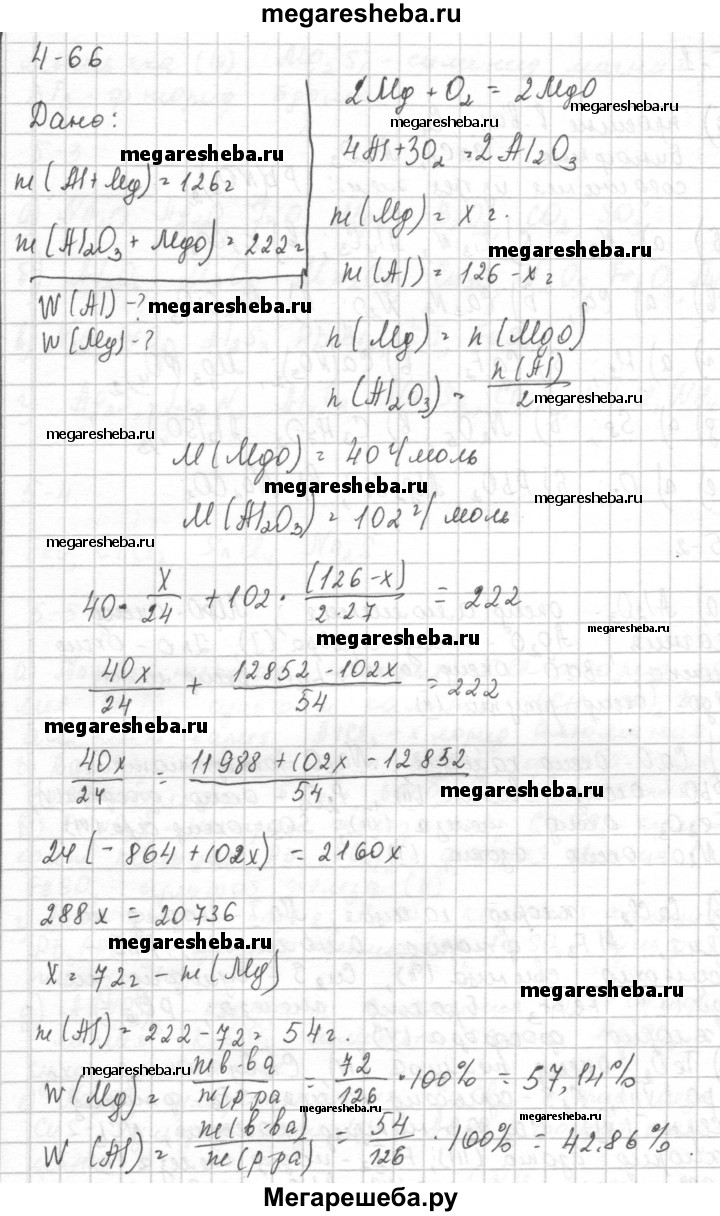 megaresheba.ru
4-66
2Mg + O2 = 2MgO
megaresheba.ru
Дано:
megaresheba.ru
megaresheba.ru
4Al + 3O2 = 2Al2O3
m(Al + Mg) = 126 г
m(Mg) = x г.
m(Al2O3 + MgO) = 222 г
megaresheba.ru
m(Al) = 126 - x г
W(Al) - ?
megaresheba.ru
W(Mg) - ?
n(Mg) = n(MgO)
n(Al2O3) = n(Al)/2
megaresheba.ru
megaresheba.ru
M(MgO) = 40 г/моль
megaresheba.ru
megaresheba.ru
M(Al2O3) = 102 г/моль
megaresheba.ru
40 · x/24 + 102 · (126 - x)/2·27 = 222
megaresheba.ru
megaresheba.ru
40x/24 + 12852 - 102x/54 = 222
megaresheba.ru
40x/24 = 11988 + 102x - 12852/54
megaresheba.ru
24(- 864 + 102x) = 2160x
288x = 20736
megaresheba.ru
x = 72 г - m(Mg)
megaresheba.ru
m(Al) = 222 - 72 = 54 г.
megaresheba.ru
W(Mg) = m в-ва/m(р-ра) = 72/126 · 100% = 57,14%
megaresheba.ru
megaresheba.ru
W(Al) = m(в-ва)/m(р-ра) = 54/126 · 100% = 42.86%.
megaresheba.ru
Мегарешеба.ру